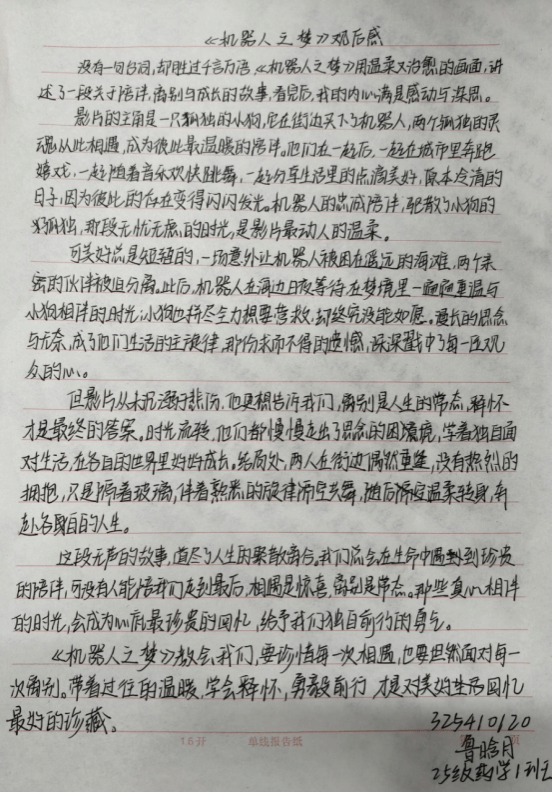 《机器人之梦》观后感
没有一句台词,却胜过千言万语,《机器人之梦》用温柔又治愈的画面,讲
述了一段关于陪伴,离别与成长的故事,看完后,我的内心满是感动与深思。
影片的主角是一只孤独的小狗,它在街边买下了机器人,两个孤独的灵
魂从此相遇,成为彼此最温暖的陪伴。他们在一起后,一起在城市里奔跑
嬉戏,一起随着音乐欢快跳舞,一起分享生活里的点滴美好,原本冷清的
日子,因为彼此的存在变得闪闪发光。机器人的忠诚陪伴,驱散了小狗的
孤独,那段无忧无虑的时光,是影片最动人的温柔。
可美好总是短暂的,一场意外让机器人被困在遥远的海滩,两个亲
密的伙伴被迫分离。此后,机器人在海边日夜等待,在梦境里一遍遍重温与
小狗相伴的时光;小狗也拼尽全力想要营救,却终究没能如愿。漫长的思念
与无奈,成了他们生活的主旋律,那份求而不得的遗憾,深深戳中了每一位观
众的心。
但影片从未沉溺于悲伤,他更想告诉我们,离别是人生的常态,释怀
才是最终的答案。时光流转,他们都慢慢走出了思念的困境,学着独自面
对生活,在各自的世界里好好成长。结局处,两人在街边偶然重逢,没有热烈的
拥抱,只是隔着玻璃,伴着熟悉的旋律隔空共舞,随后温柔转身,奔
赴各自的人生。
这段无声的故事,道尽了人生的聚散离合。我们总会在生命中遇到珍贵
的陪伴,可没有人能陪我们走到最后,相遇是惊喜,离别是常态。那些真心相伴
的时光,会成为心底最珍贵的回忆,给予我们独自前行的勇气。
《机器人之梦》教会我们,要珍惜每一次相遇,也要坦然面对每一
次离别。带着过往的温暖,学会释怀,勇毅前行,才是对美好生活回忆
最好的珍藏。
325410120
16开 单线报告纸 页
鲁晗月
25级药学1班